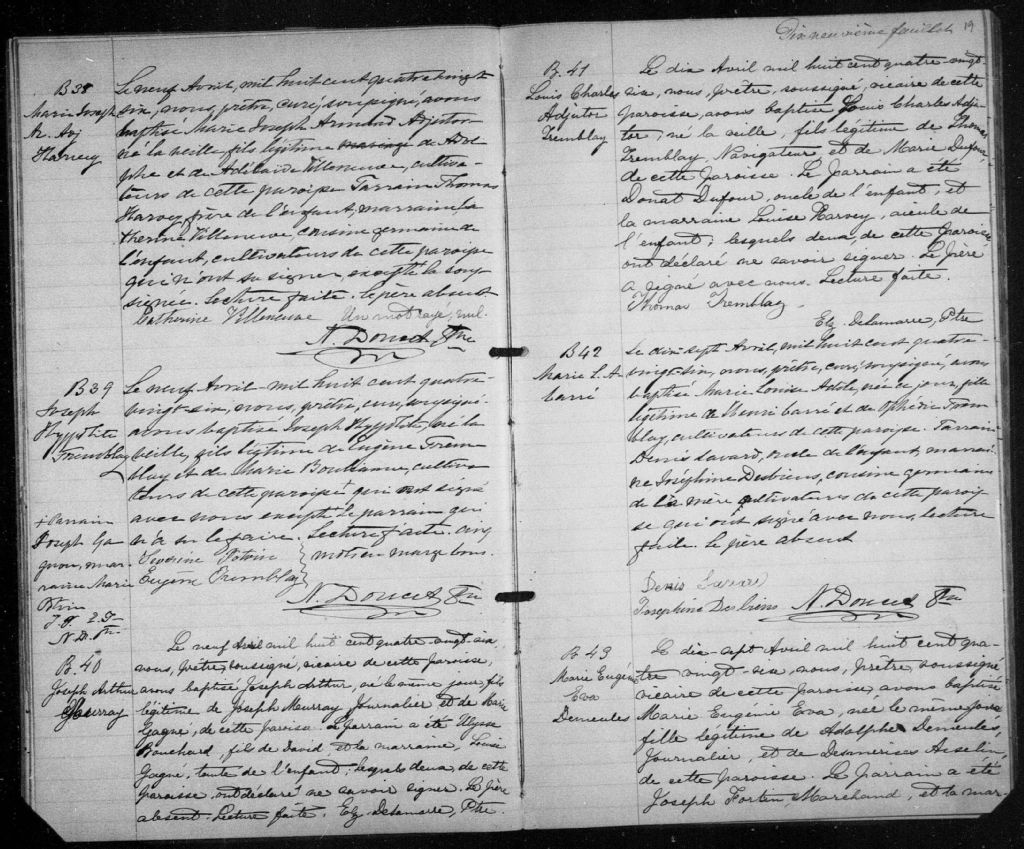 B38
Marie Joseph
A. Adj
Harvey
Le neuf Avril, mil huit cent quatre vingt
six, nous, prêtre, curé, soussigné, avons
baptisé Marie Joseph Armand Adjutor
né la veille, fils légitime mariage de Adol-
phe et de Adélaïde Villeneuve, cultiva-
teurs de cette paroisse Parrain Thomas
Harvey, frère de l'enfant, marraine Ca
therine Villeneuve, cousine germaine de
l'enfant, cultivateurs de cette paroisse
qui n'ont su signer excepté la sous-
signée. Lecture faite. Le père absent
Catherine Villeneuve Un mot rayé, nul.
N. Doucet Ptre
B39
Joseph
Hyppolite
Tremblay
Le neuf Avril mil huit cent quatre-
vingt-six, nous, prêtre, curé, soussigné
avons baptisé Joseph Hyppolite, né la
veille, fils légitime de Eugène Trem
blay et de Marie Bouthianne, cultiva
teurs de cette paroisse + qui ont signé
avec nous excepté le parrain qui
n'a su le faire. Lecture faite. cinq
mots en marge bons.
+ Parrain
Joseph Ga
gnon, mar-
raine Marie
N. D. Ptre
Eugène Tremblay
N. Doucet Ptre
B. 40
Joseph Arthur
Murray
Le neuf Avril mil huit cent quatre-vingt-six
nous, prêtre, soussigné, vicaire de cette paroisse,
avons baptisé Joseph Arthur, né le même jour, fils
légitime de Joseph Murray Journalier et de Marie
Gagné, de cette paroisse. Le parrain a été Ulysse
Bouchard, fils de David et la marraine, Louise
Gagné, tante de l'enfant; lesquels deux, de cette
paroisse, ont déclaré ne savoir signer. Le père
absent. Lecture faite. Elz. DeLamarre, Ptre.
Dix neuvième feuillet 19
B. 41
Louis Charles
Adjutor
Tremblay
Le dix Avril mil huit cent quatre-vingt
six, nous, prêtre, soussigné, vicaire de cette
paroisse, avons baptisé Louis Charles Adju-
tor, né la veille, fils légitime de Thomas
Tremblay, Navigateur, et de Marie Dufour,
de cette paroisse. Le parrain a été
Donat Dufour, oncle de l'enfant, et
la marraine Louise Harvey, aïeule de
l'enfant; lesquels deux, de cette paroisse,
ont déclaré ne savoir signer. Le père
a signé avec nous. Lecture faite.
Thomas Tremblay
Elz. DeLamarre, Ptre
B42
Marie L. A
Carré
Le dix-sept Avril, mil huit cent quatre-
vingt-six, nous, prêtre, curé, soussigné, avons
baptisé Marie Louise Adèle, née ce jour, fille
légitime de Henri Carré et de Ophélie Trem
blay, cultivateurs de cette paroisse. Parrain
Denis Savard, oncle de l'enfant, marrai-
ne Joséphine Desbiens, cousine germaine
de la mère, cultivateurs de cette parois
se qui ont signé avec nous, lecture
faite. Le père absent
Denis Savard
Josephine Desbiens N. Doucet Ptre
B. 43
Marie Eugénie
Eva
Demeules
Le dix-sept Avril mil huit cent qua-
tre vingt-six, nous, prêtre soussigné
vicaire de cette paroisse, avons baptisé
Marie Eugénie Eva, née le même jour
fille légitime de Adolphe Demeules,
Journalier, et de Desmerises Asselin,
de cette paroisse. Le parrain a été
Joseph Fortin Marchand, et la mar-